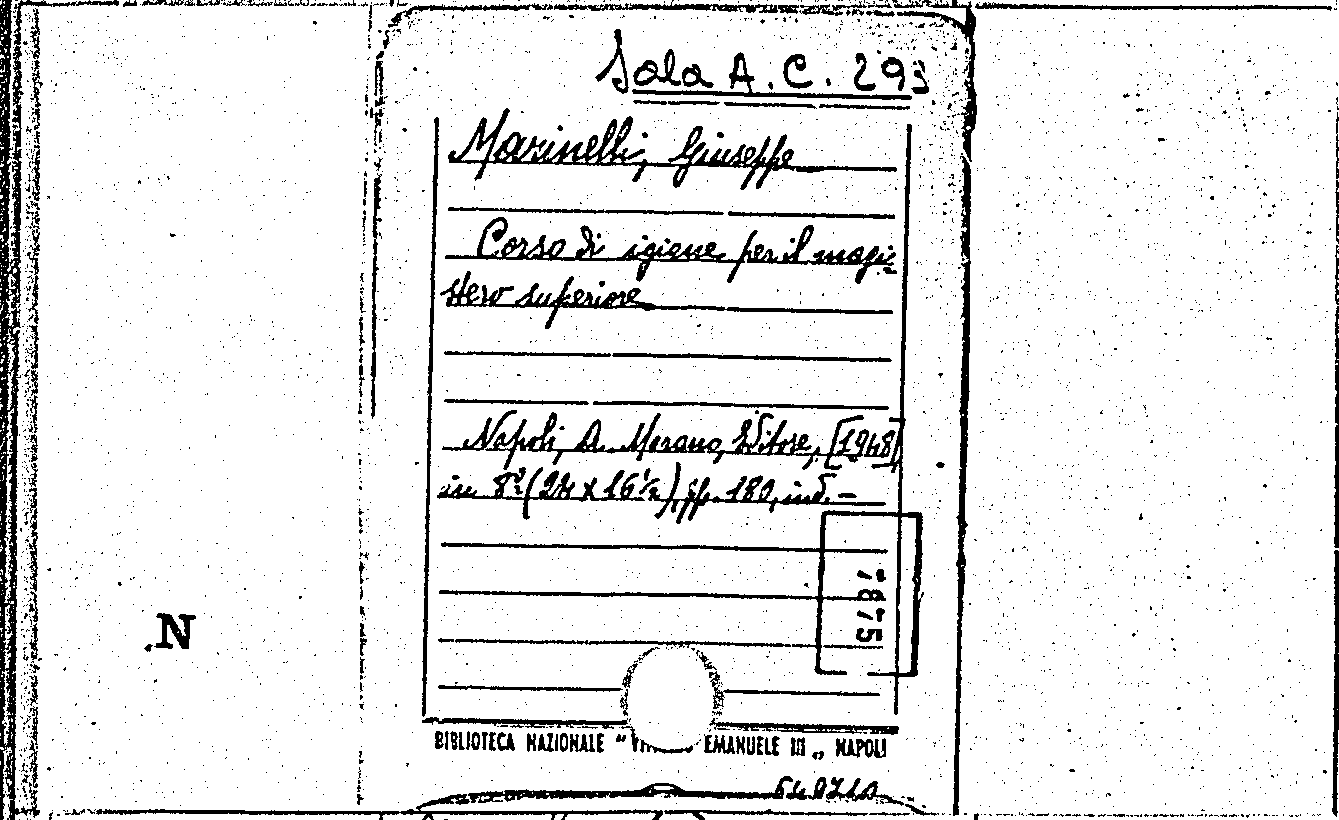 Sala A. C. 293
Marinelli, Giuseppe
Corso di igiene per il magi-
stero superiore
Napoli, A. Morano, Editore, [1948]
in 8º (24 x 16 ½), pp. 180, ind. –
7875
N
BIBLIOTECA NAZIONALE " EMANUELE III „ NAPOLI